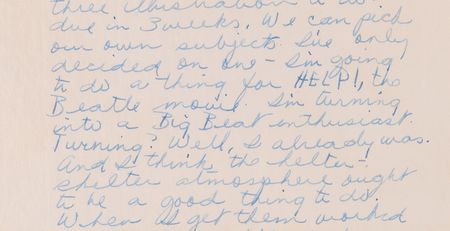 three illustrations to do
due in 3 weeks. We can pick
our own subjects. I've only
decided on one - I'm going
to do a thing for HELP!, the
Beatle movie. I'm turning
into a Big Beat enthusiast.
Turning? Well, I already was.
And I think the helter-
shelter atmosphere ought
to be a good thing to do.
When I get them worked